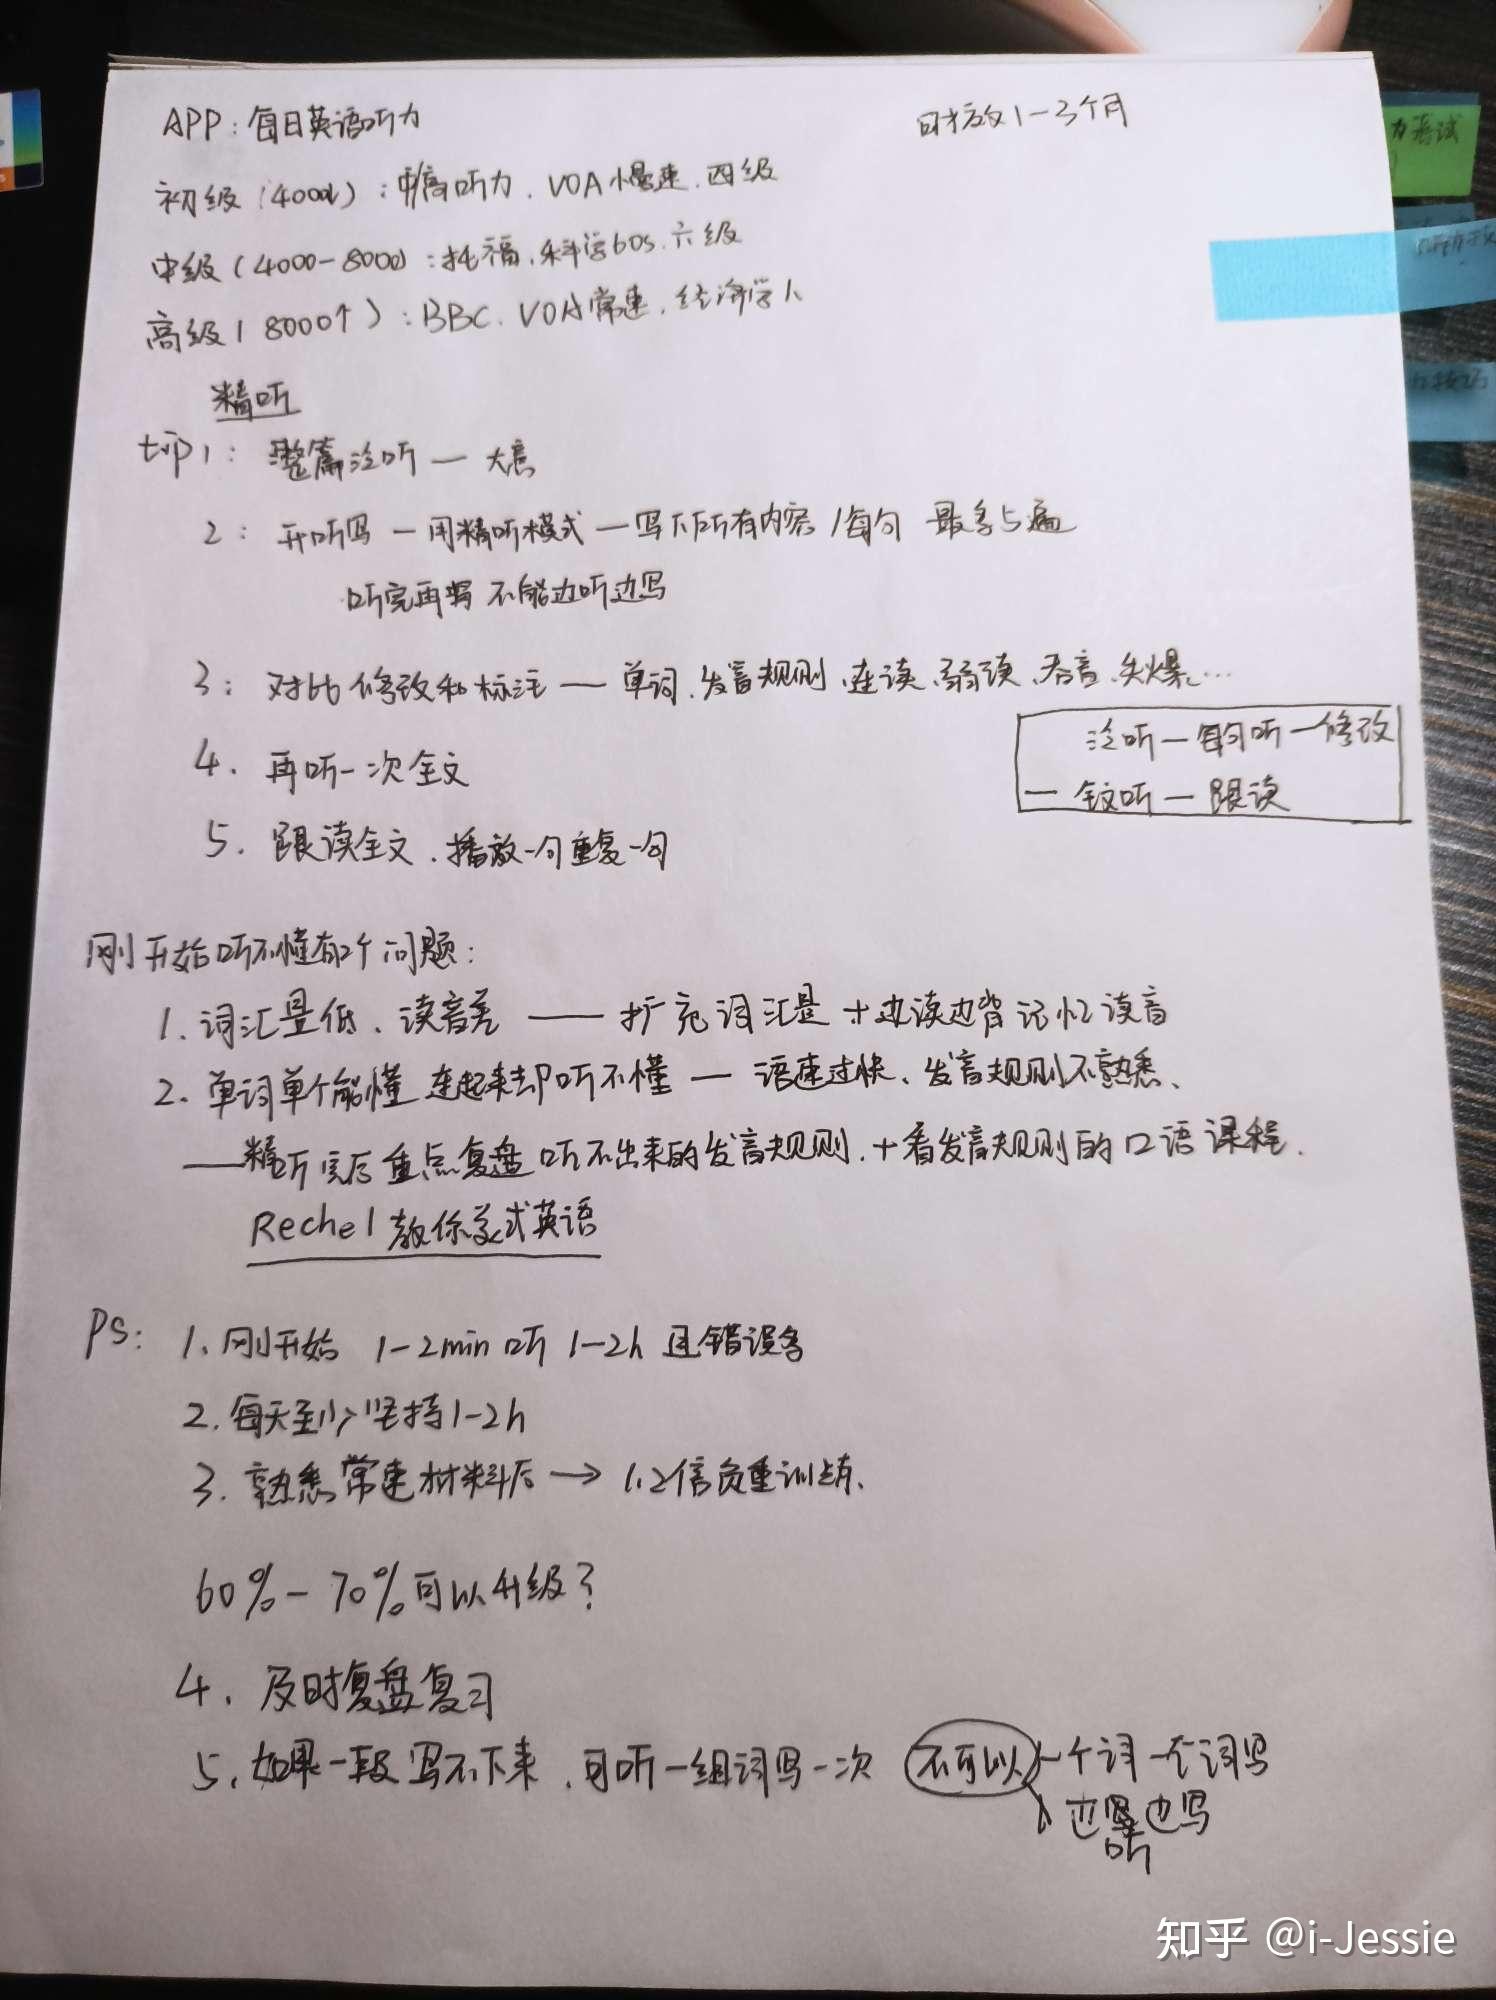 APP：每日英语听力
时效1-3个月
初级（4000↓）：中高听力、VOA慢速、四级
中级（4000-8000）：托福、科学60s、六级
高级（8000↑）：BBC、VOA常速、经济学人
精听
tip1：整篇泛听 — 大意
2：开听写 — 用精听模式 — 写下所有内容/每句 最多5遍
听完再写 不能边听边写
3：对比修改和标注 — 单词、发音规则、连读、弱读、吞音、失爆、…
泛听 — 每句听 — 修改
— 全文听 — 跟读
4. 再听一次全文
5. 跟读全文、播放一句重复一句
刚开始听不懂有2个问题：
1. 词汇量低、读音差 —— 扩充词汇量 + 边读边背记忆读音
2. 单词单个能懂 连起来却听不懂 — 语速过快、发音规则不熟悉、
—— 精听完后重点复盘听不出来的发音规则、+看发音规则的口语课程.
Rechel教你美式英语
PS：1. 刚开始 1-2min 听 1-2h 且错误多
2. 每天至少坚持1-2h
3. 熟悉常速材料后 → 1.2倍负重训练.
60%-70%可以升级？
4. 及时复盘复习
5. 如果一段写不下来、可听一组词写一次 不可以 一个词一个词写
边听边写
知乎 @i-Jessie